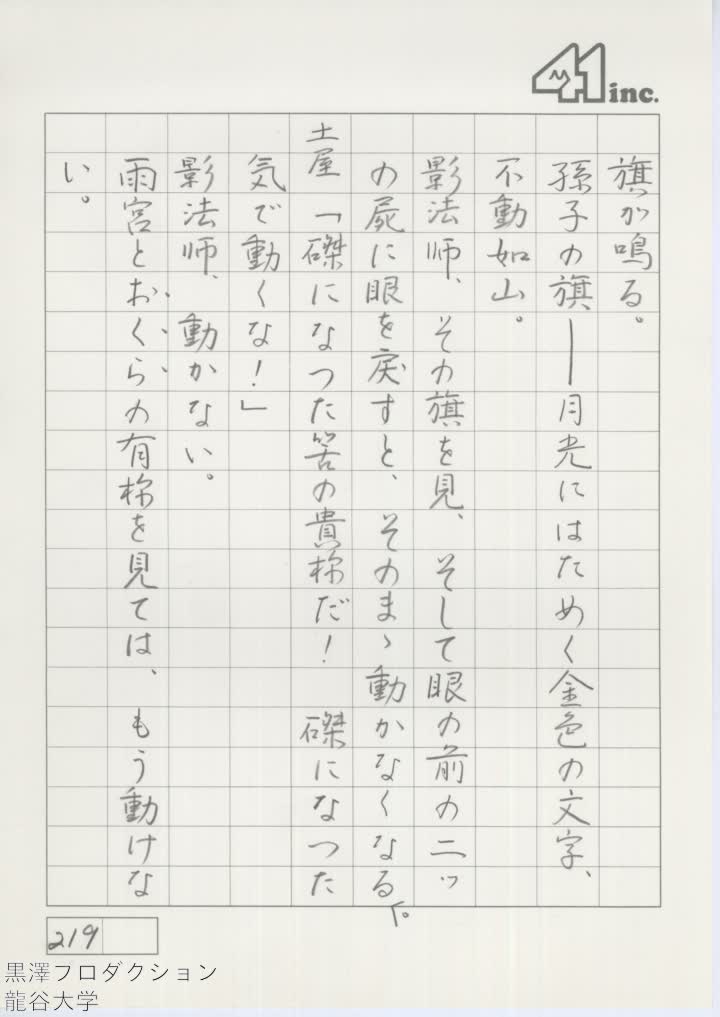 41 inc.
旗が鳴る。
孫子の旗―月光にはためく金色の文字、
不動如山。
影法師、その旗を見、そして眼の前の二ッ
の屍に眼を戻すと、そのまゝ動かなくなる。
土屋「磔になつた筈の貴様だ！　磔になつた
気で動くな！」
影法師、動かない。
雨宮とおくらの有様を見ては、もう動けな
い。
219
黒澤プロダクション
龍谷大学